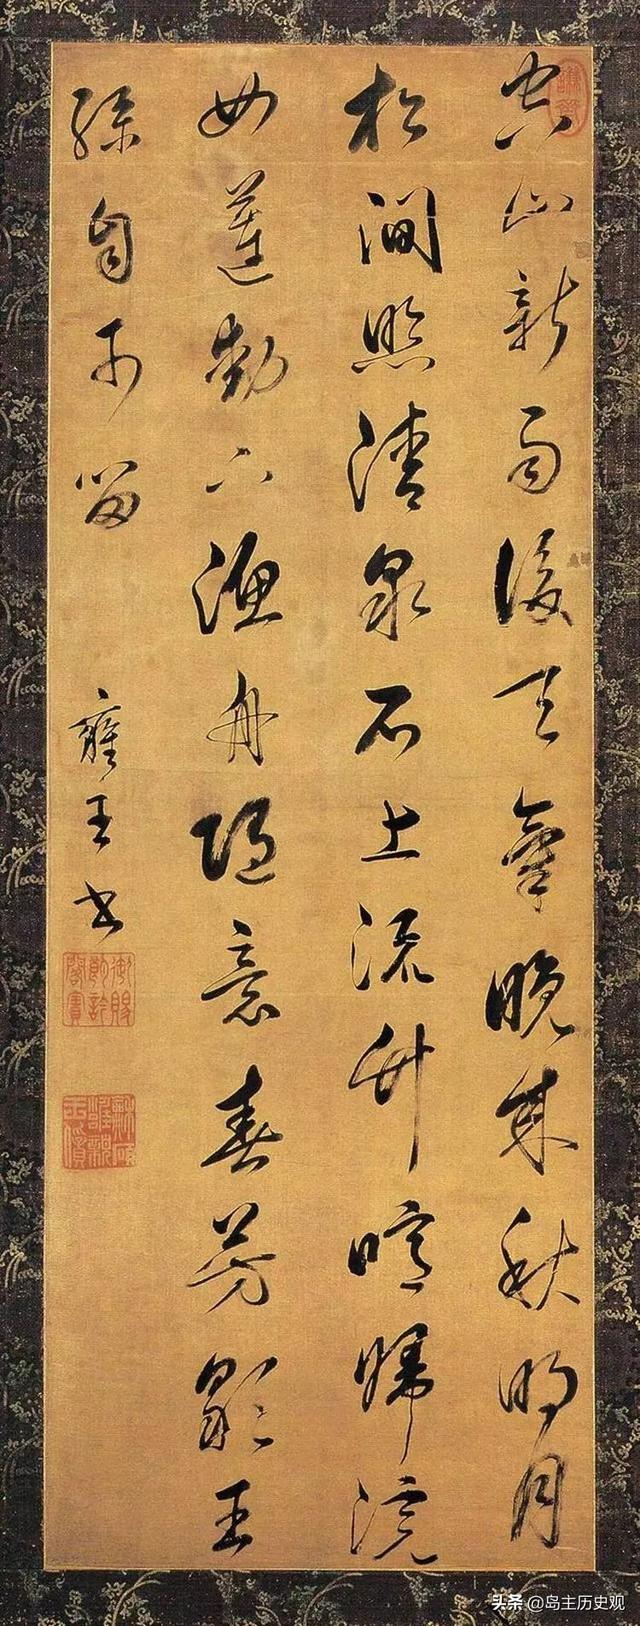 空山新雨後天氣晚來秋明月
松澗照清泉石上流竹喧歸浣
女蓮動下漁舟隨意春芳歇王
孫自可留
雍王書
御賜朗吟閣寶
头条 @岛主历史观